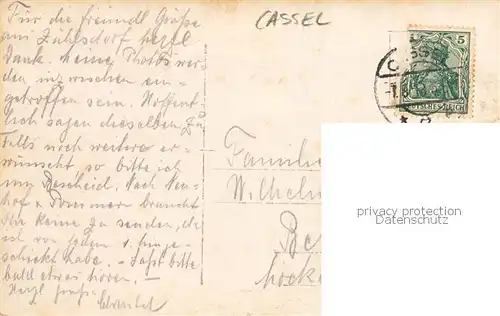 Für die freundl Grüße
aus Zühlsdorf herzl
Dank. Meine Photos wer-
den inzwischen ein-
getroffen sein. Hoffent-
lich sagen dieselben zu
Falls noch weitere er-
wünscht so bitte ich
um Bescheid. Nach Neu-
hof + Pommern braucht
Ihr keine zu senden, da
ich von jedem 1 hinge-
schickt habe. - Laßt bitte
bald etwas hören. -
Herzl Grüße
CASSEL
5
DEUTSCHES REICH
Familie
Wilhelm
privacy protection
Datenschutz